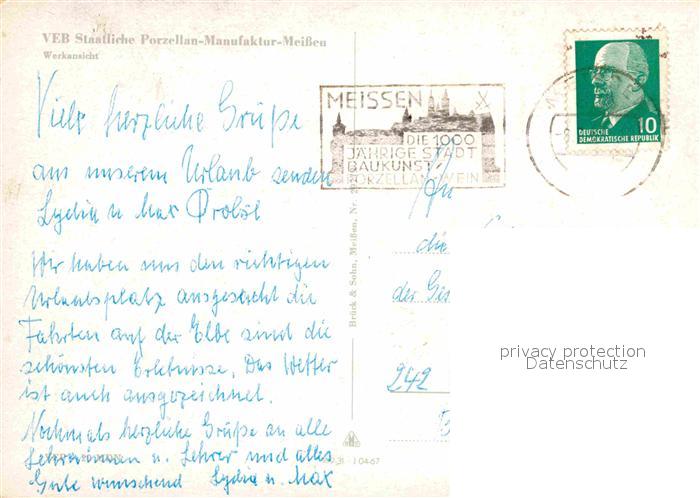 VEB Staatliche Porzellan-Manufaktur-Meißen
Werkansicht
Viele herzliche Grüße
aus unserem Urlaub senden
Lydia u Max
Wir haben uns den richtigen
Urlaubsplatz ausgesucht die
Fahrten auf der Elbe sind die
schönsten Erlebnisse. Das Wetter
ist auch ausgezeichnet.
Nochmals herzliche Grüße an alle
Lehrerinnen u. Lehrer und alles
Gute wünschend Lydia u. Max
MEISSEN
DIE 1000
JÄHRIGE STADT
BAUKUNST
PORZELLAN WEIN
10
DEUTSCHE
DEMOKRATISCHE REPUBLIK
Brück & Sohn, Meißen, Nr.
An
die
der
242
privacy protection
Datenschutz